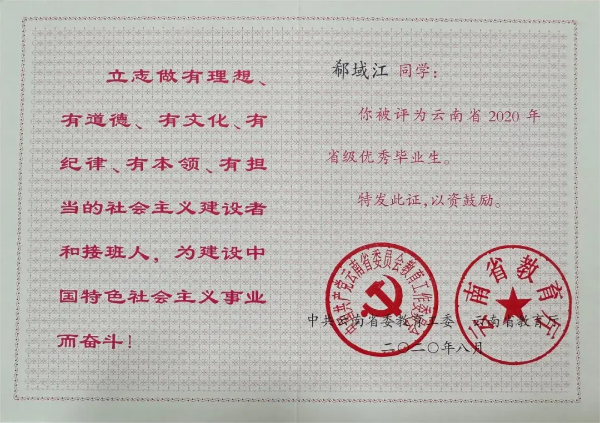 立志做有理想、
有道德、有文化、有
纪律、有本领、有担
当的社会主义建设者
和接班人，为建设中
国特色社会主义事业
而奋斗！
郗域江 同学：
你被评为云南省2020年
省级优秀毕业生。
特发此证，以资鼓励。
中国共产党云南省委员会教育工作委员会
云南省教育厅
中共云南省委教育工委 云南省教育厅
二〇二〇年八月